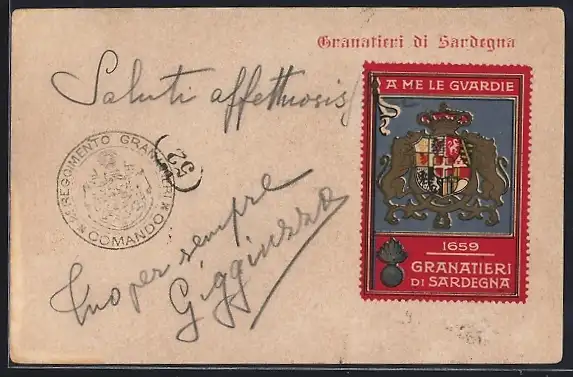 Granatieri di Sardegna
Saluti affettuosis
A ME LE GVARDIE
52
REGGIMENTO GRANATIERI
COMANDO
Tuo per sempre
Giggiuzzo
1659
GRANATIERI
DI SARDEGNA